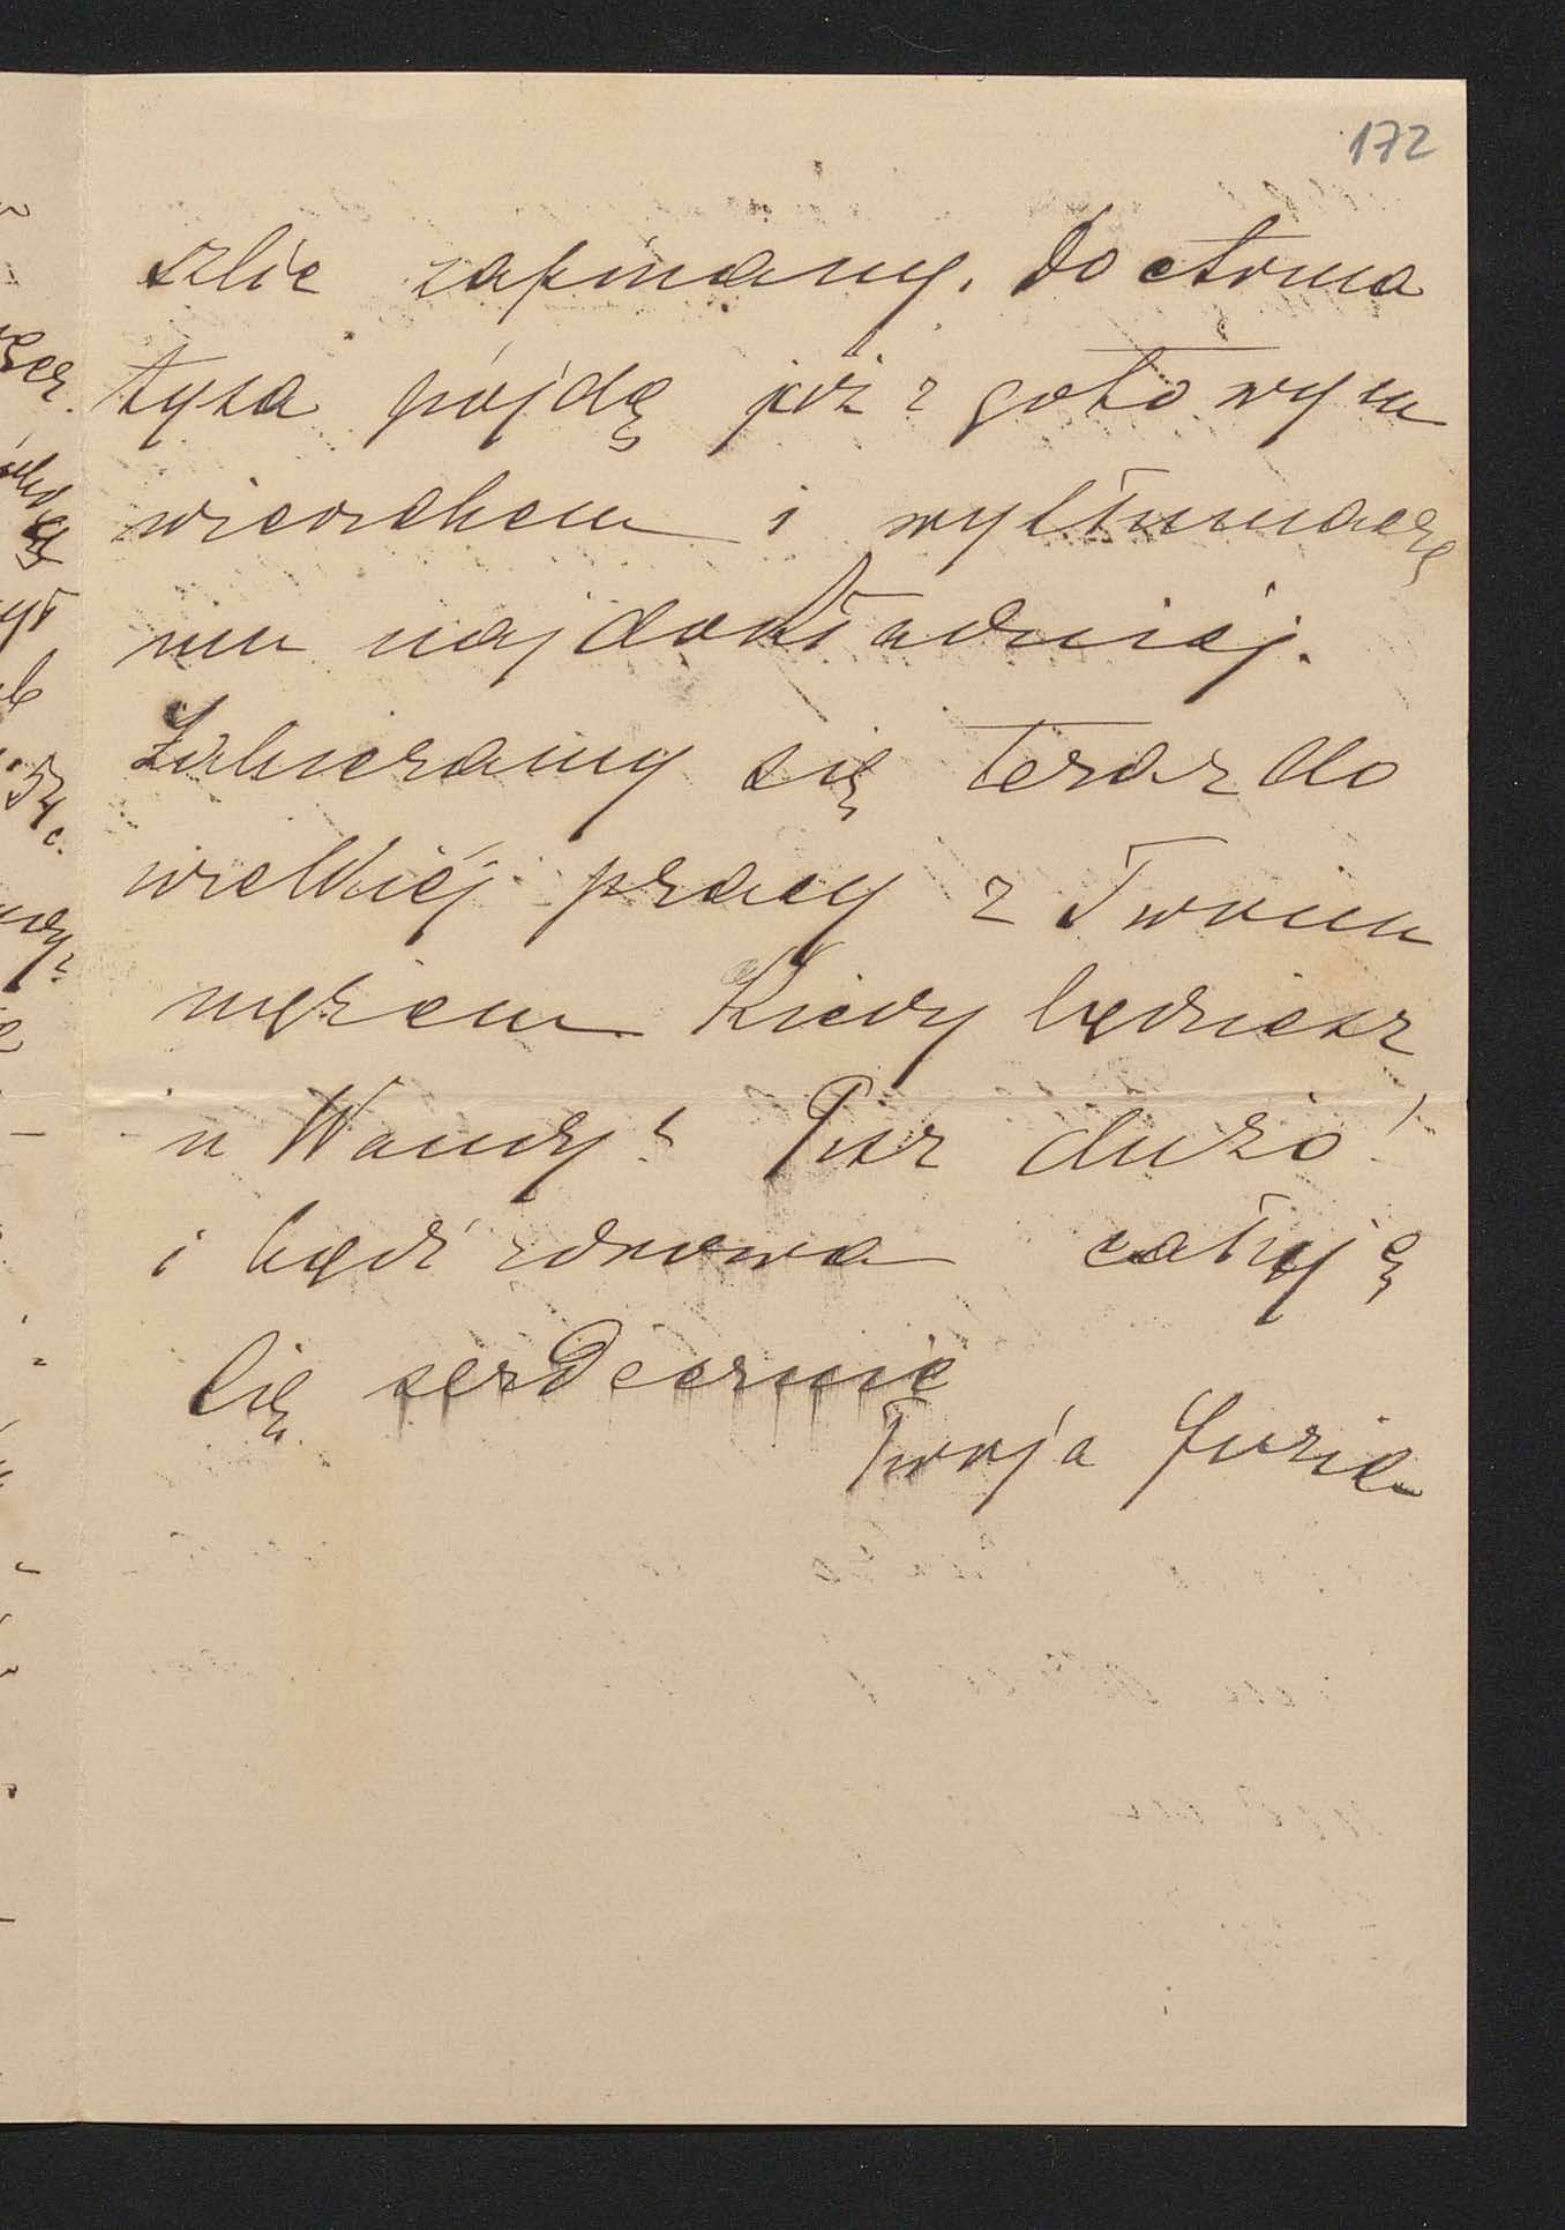 172
szlic zapinany. Do
tysa pójdę już z gotowym
wierzchem i wytłumaczę
mu najdokładniéj.
Zabieramy się teraz do
wielkiéj pracy z Twoim
mężem Kiedy będziesz
u Wandy? Pisz dużo!
i bądź zdrowa całuję
Cię serdecznie
Twoja Juzia